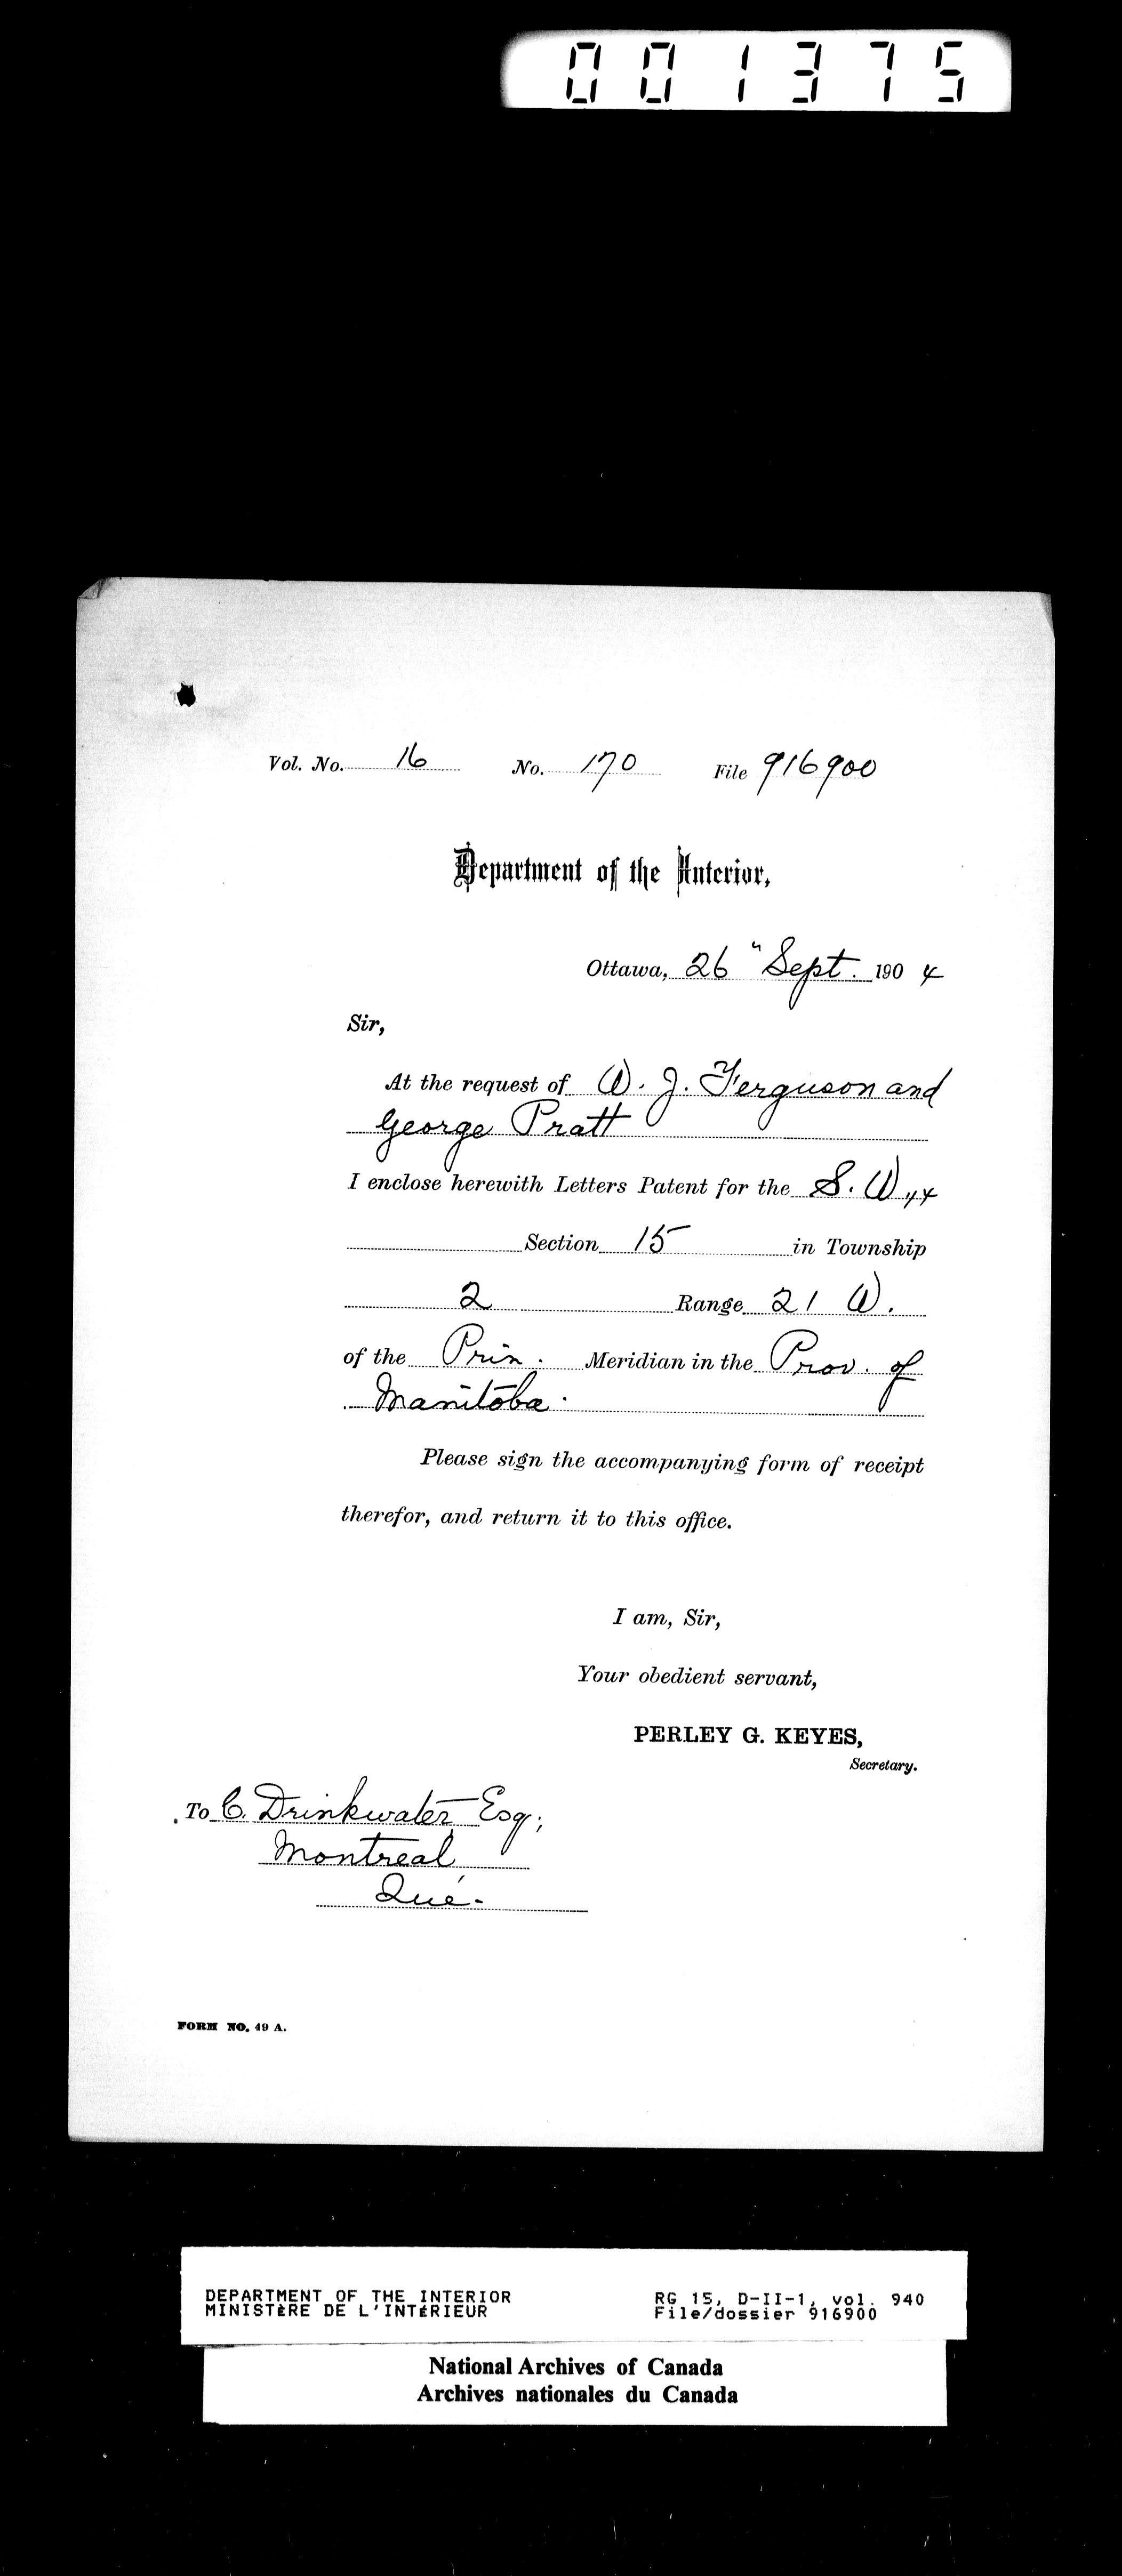 001375
Vol. No. 16 No. 170 File 916900
Department of the Interior,
Ottawa, 26" Sept. 1904
Sir,
At the request of W. J. Ferguson and
George Pratt
I enclose herewith Letters Patent for the S. W. 1/4
Section 15 in Township
2 Range 21 W.
of the Prin. Meridian in the Prov. of
Manitoba.
Please sign the accompanying form of receipt
therefor, and return it to this office.
I am, Sir,
Your obedient servant,
PERLEY G. KEYES,
Secretary.
To C. Drinkwater, Esq;
Montreal,
Qué.
FORM NO. 49 A.
DEPARTMENT OF THE INTERIOR RG 15, D-II-1, vol. 940
MINISTÈRE DE L'INTÉRIEUR File/dossier 916900
National Archives of Canada
Archives nationales du Canada